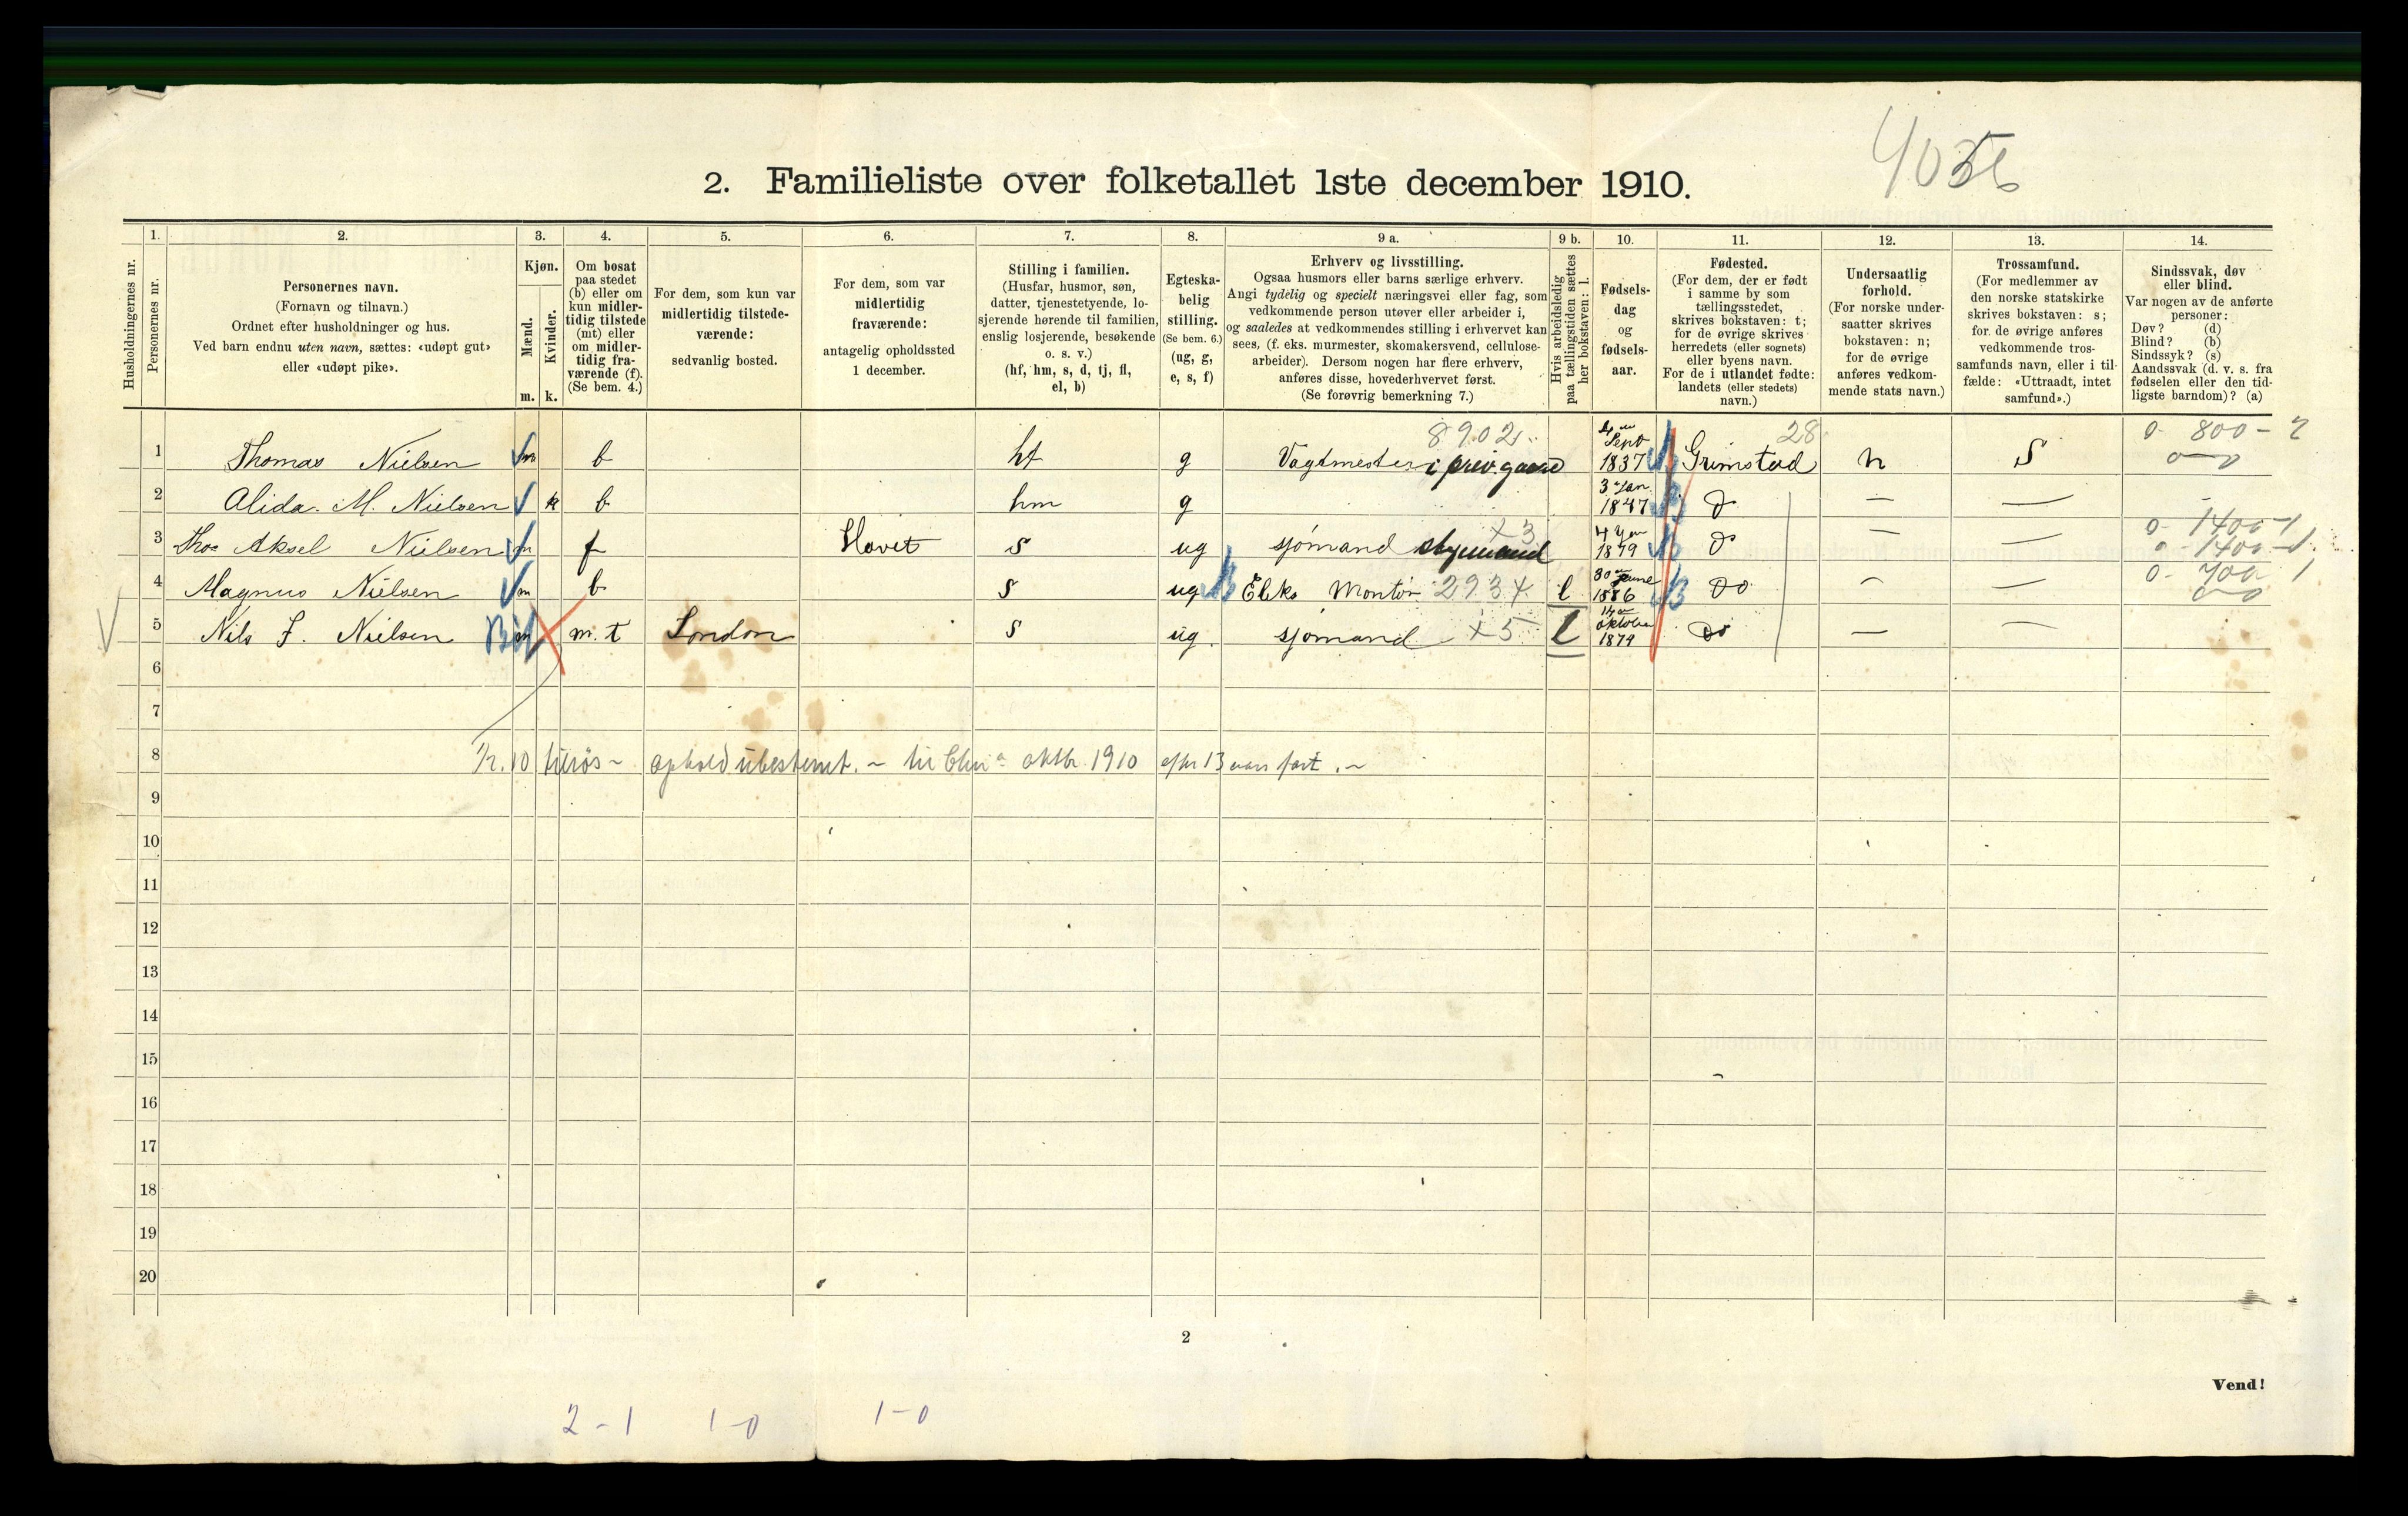 2. Familieliste over folketallet 1ste december 1910.
Husholdningernes nr.
1.
Personernes nr.
2.
Personernes navn.
(Fornavn og tilnavn.)
Ordnet efter husholdninger og hus.
Ved barn endnu uten navn, sættes: «udøpt gut»
eller «udøpt pike».
3.
Kjøn.
Mænd.
Kvinder.
m. k.
4.
Om bosat
paa stedet
(b) eller om
kun midler-
tidig tilstede
(mt) eller
om midler-
tidig fra-
værende (f).
(Se bem. 4.)
5.
For dem, som kun var
midlertidig tilstede-
værende:
sedvanlig bosted.
6.
For dem, som var
midlertidig
fraværende:
antagelig opholdssted
1 december.
7.
Stilling i familien.
(Husfar, husmor, søn,
datter, tjenestetyende, lo-
sjerende hørende til familien,
enslig losjerende, besøkende
o. s. v.)
(hf, hm, s, d, tj, fl,
el, b)
8.
Egteska-
belig
stilling.
(Se bem. 6.)
(ug, g,
e, s, f)
9 a.
Erhverv og livsstilling.
Ogsaa husmors eller barns særlige erhverv.
Angi tydelig og specielt næringsvei eller fag, som
vedkommende person utøver eller arbeider i,
og saaledes at vedkommendes stilling i erhvervet kan
sees, (f. eks. murmester, skomakersvend, cellulose-
arbeider). Dersom nogen har flere erhverv,
anføres disse, hovederhvervet først.
(Se forøvrig bemerkning 7.)
9 b.
Hvis arbeidsledig
paa tællingstiden sættes
her bokstaven: l.
10.
Fødsels-
dag
og
fødsels-
aar.
11.
Fødested.
(For dem, der er født
i samme by som
tællingsstedet,
skrives bokstaven: t;
for de øvrige skrives
herredets (eller sognets)
eller byens navn.
For de i utlandet fødte:
landets (eller stedets)
navn.)
12.
Undersaatlig
forhold.
(For norske under-
saatter skrives
bokstaven: n;
for de øvrige
anføres vedkom-
mende stats navn.)
13.
Trossamfund.
(For medlemmer av
den norske statskirke
skrives bokstaven: s;
for de øvrige anføres
vedkommende tros-
samfunds navn, eller i til-
fælde: «Uttraadt, intet
samfund».)
14.
Sindssvak, døv
eller blind.
Var nogen av de anførte
personer:
Døv? (d)
Blind? (b)
Sindssyk? (s)
Aandssvak (d. v. s. fra
fødselen eller den tid-
ligste barndom)? (a)
8902 28 0- 800- 2
1 Thomas Nielsen m b hf g Vagtmester i priv. gaard Sept 1837 Grimstad n S
2 Alida. M. Nielsen k b hm g 3 Jan 1847 Do — —
3 Thos Aksel Nielsen m f Havet s ug sjømand styrmand x3 4 Jan 1879 Do — — 0- 1400-1
0 1400-1
4 Magnus Nielsen m b s ug Elekt Montør 2934 l 30 June 1886 Do — — 0- 700 1
5 Nils J. Nielsen m m.t London s ug. sjømand x5 l oktober 1874 Do — —
6
7
8 1/2.10 opholdubestemt. ~ til Chria oktbr. 1910 efter 13 aars fart. ~
9
10
11
12
13
14
15
16
17
18
19
20
2
Vend!
2-1 1-0 1-0